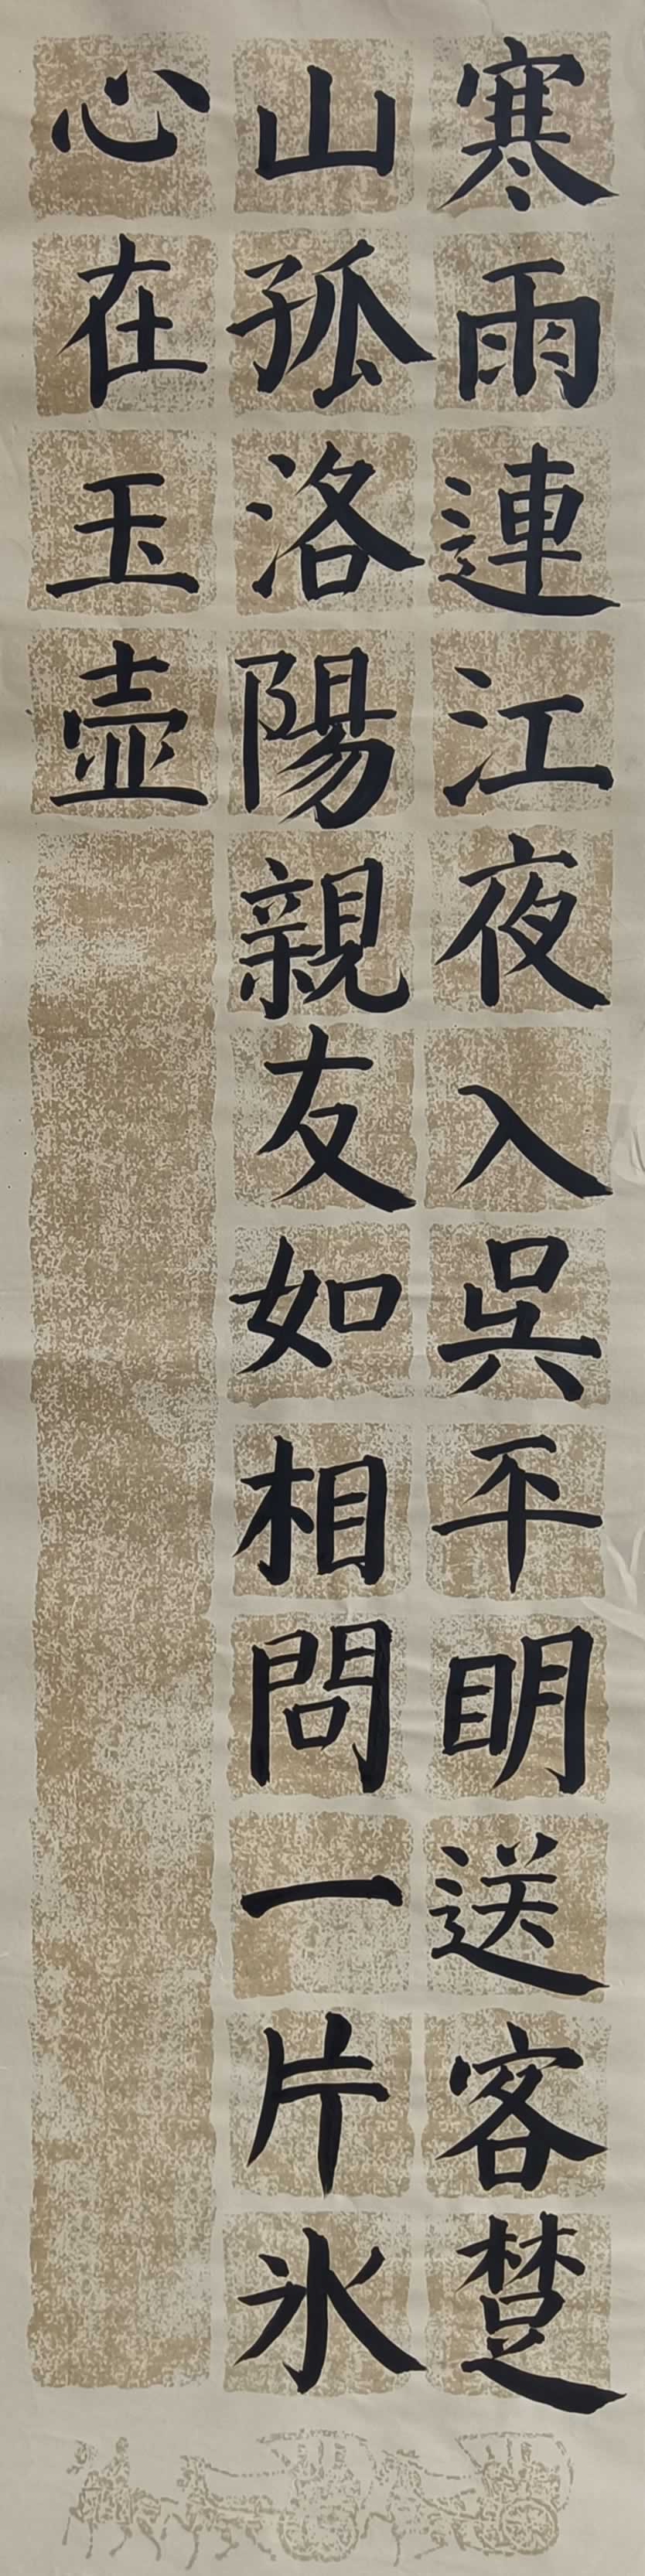 寒雨連江夜入吳平明送客楚
山孤洛陽親友如相問一片氷
心在玉壺